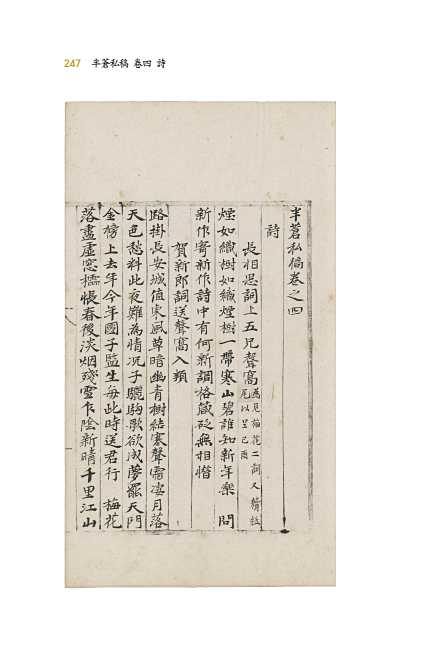 247 半蒼私稿 卷四 詩
半蒼私稿卷之四
詩
長相思詞上五兄聲窩
煙如織樹如織煙樹一帶寒山碧誰知新年樂 問
新作寄新作詩中有何新調格箴砭無相惜
賀新郎詞送聲窩入類
路掛長安城值東風草暗幽青樹結寒聲需凄月落
天色愁料此夜難為情况子驪駒歌欲成夢罷天門
金榜上去年今年國子監生每此時送君行 梅花
落盡虛窓悵春後淡烟殘雪乍陰新晴千里江山